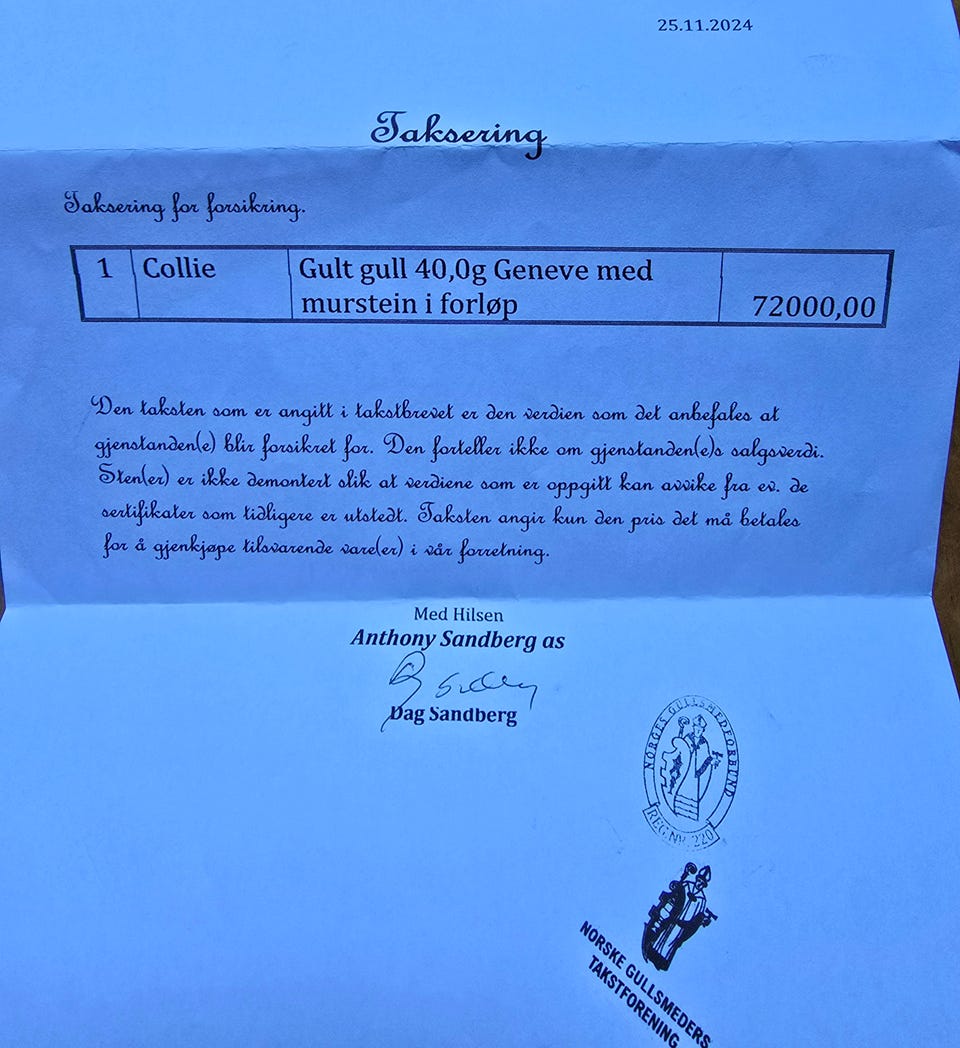 25.11.2024
Taksering
Taksering for forsikring.
1 Collie Gult gull 40,0g Geneve med
murstein i forløp 72000,00
Den taksten som er angitt i takstbrevet er den verdien som det anbefales at
gjenstanden(e) blir forsikret for. Den forteller ikke om gjenstanden(e)s salgsverdi.
Sten(er) er ikke demontert slik at verdiene som er oppgitt kan avvike fra ev. de
sertifikater som tidligere er utstedt. Taksten angir kun den pris det må betales
for å gjenkjøpe tilsvarende vare(er) i vår forretning.
Med Hilsen
Anthony Sandberg as
Dag Sandberg
NORGES GULLSMEDFORBUND
REG.NR. 220
NORSKE GULLSMEDERS
TAKSTFORENING